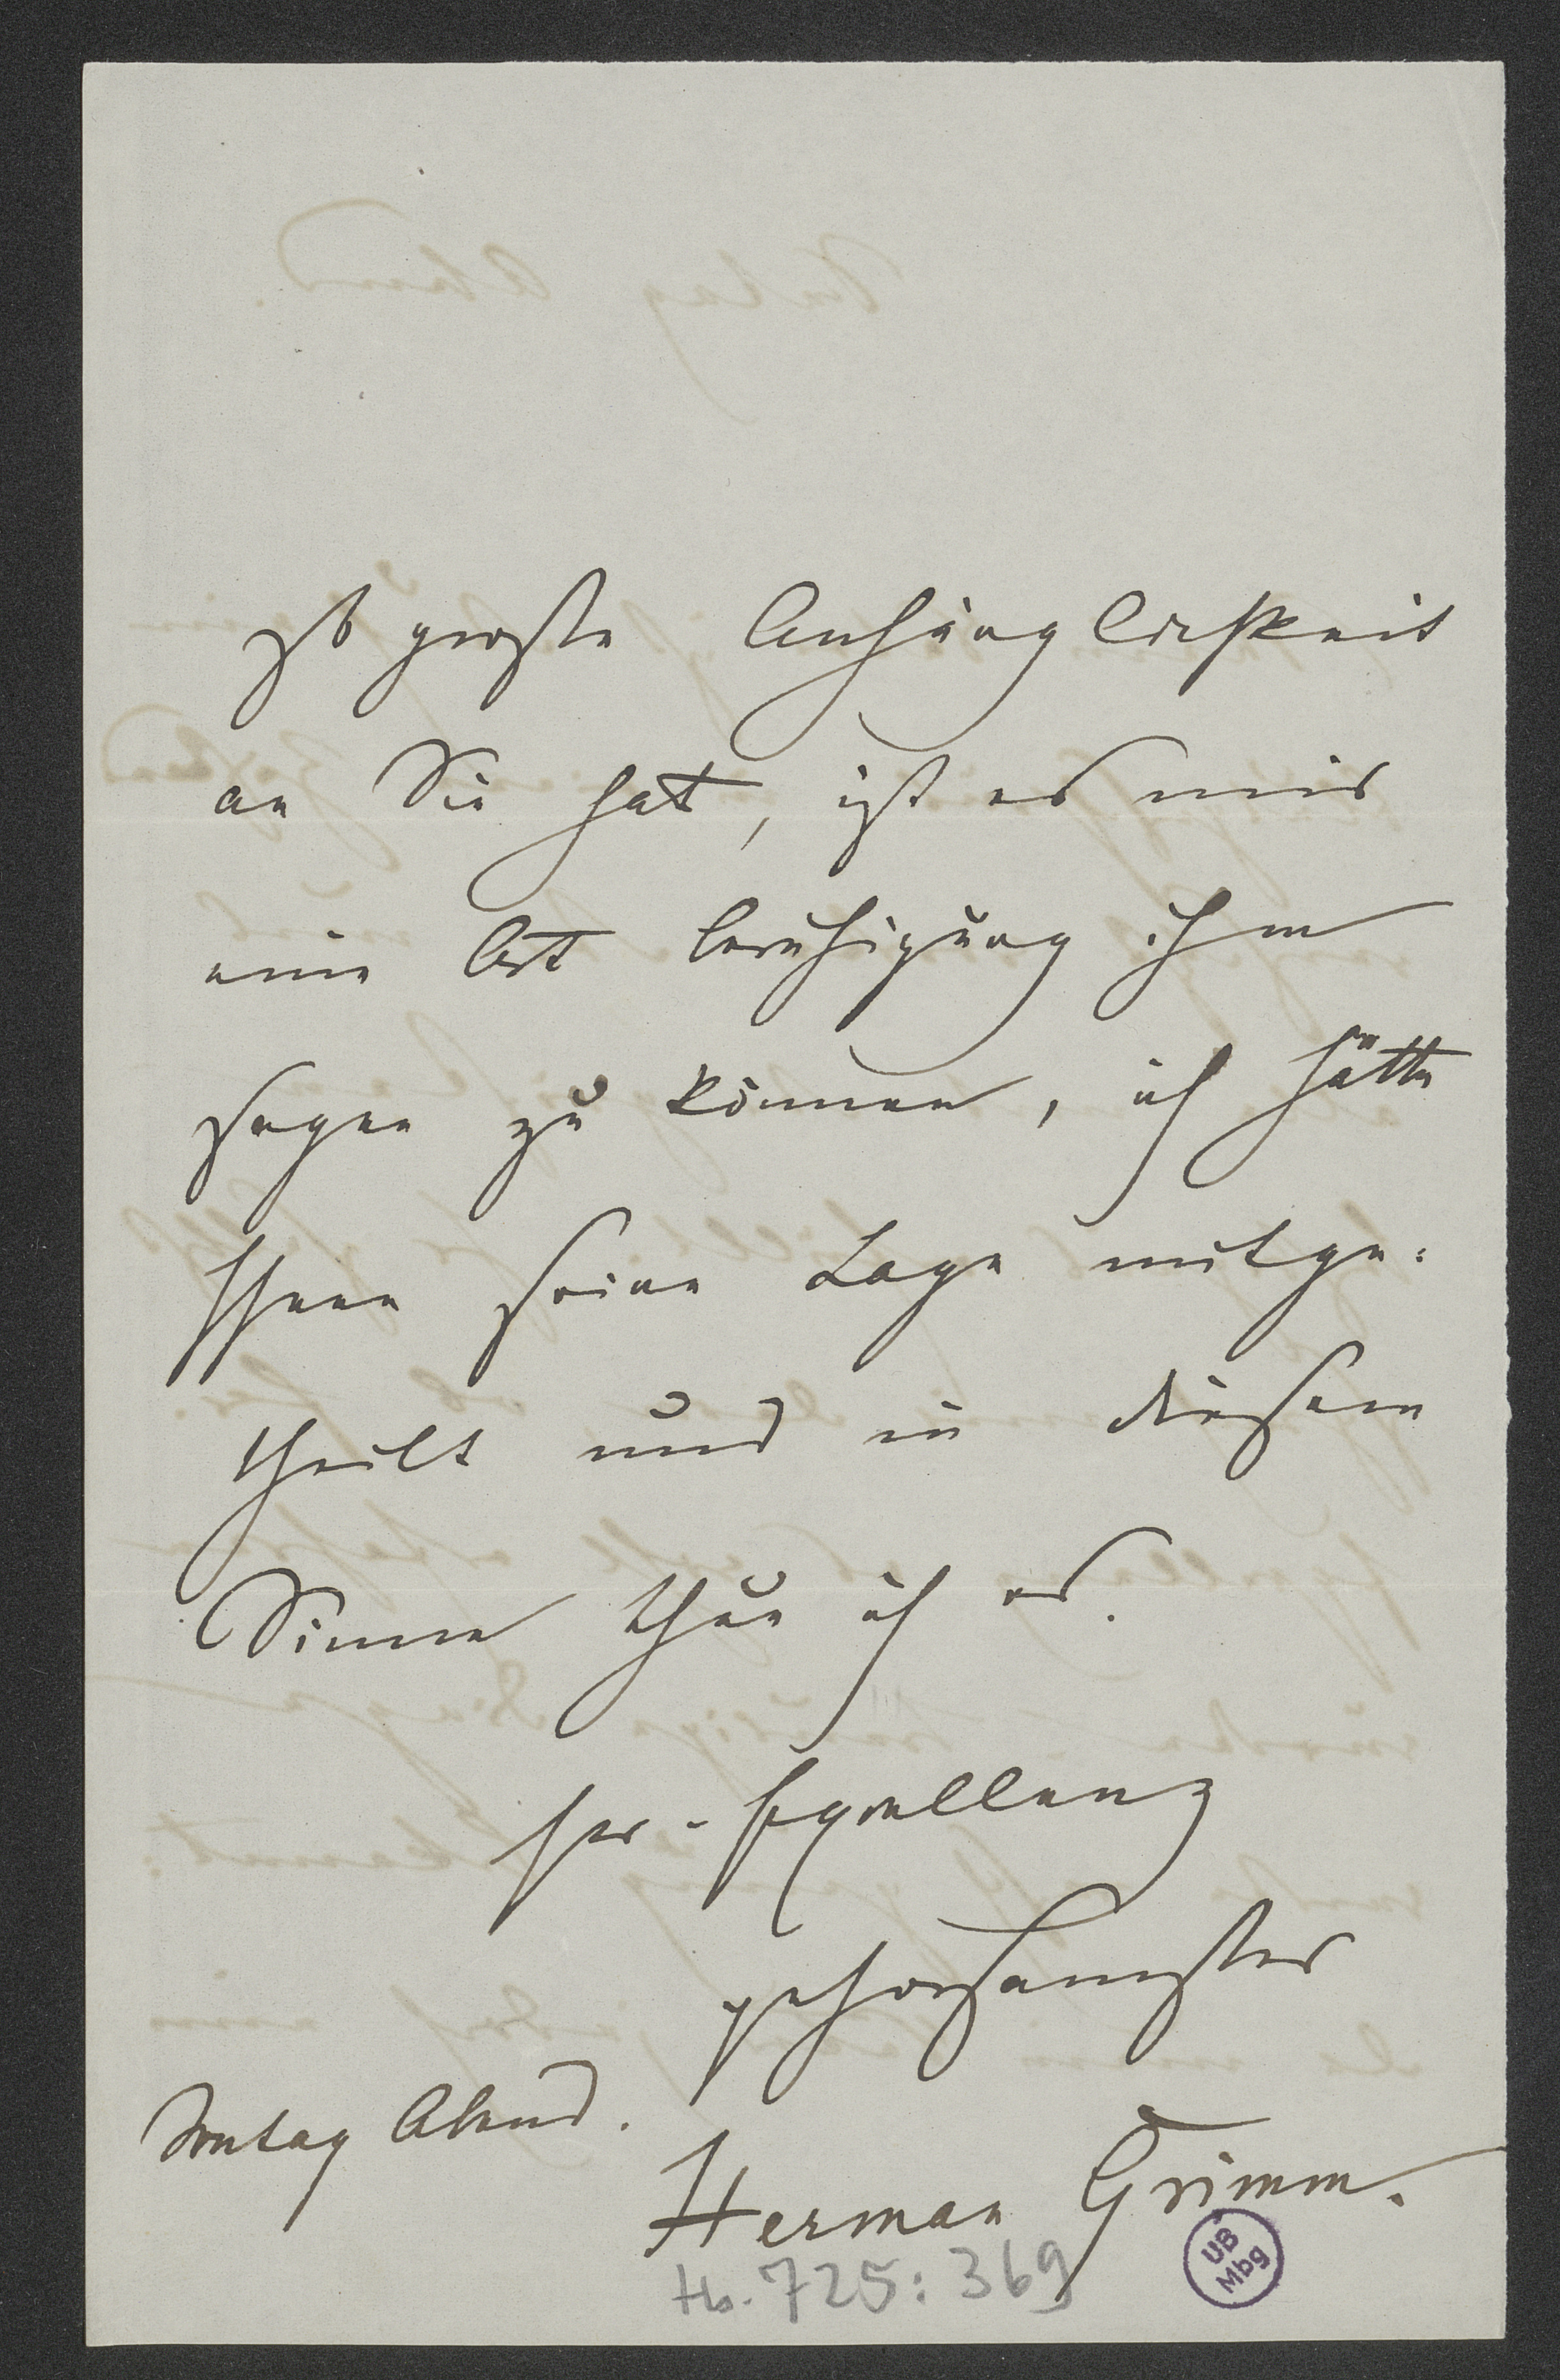 so große Anhänglichkeit
an Sie hat, ist es mir
eine Art beruhigung ihm
sagen zu können, ich hätte
Ihnen seine Lage mitge:
theilt und in diesem
Sinne thue ich es.
Ew. Excellenz
gehorsamster
Sontag Abend.
Herman Grimm.
Hs. 725: 369
UB
Mbg